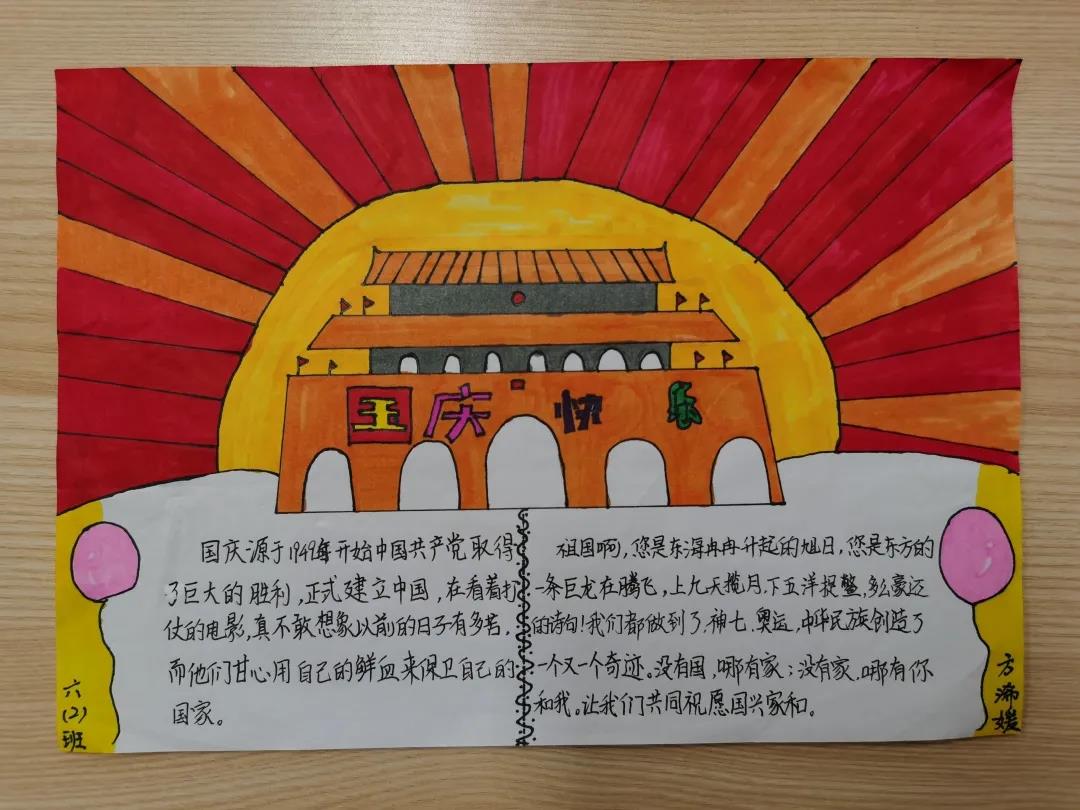 国庆快乐
国庆源于1949年开始中国共产党取得
了巨大的胜利,正式建立中国,在看着打
仗的电影,真不敢想象以前的日子有多苦,
而他们甘心用自己的鲜血来保卫自己的
国家。
祖国啊,您是东海冉冉升起的旭日,您是东方的
一条巨龙在腾飞,上九天揽月.下五洋捉鳖,多么豪迈
的诗句!我们都做到了.神七.奥运.中华民族创造了
一个又一个奇迹。没有国,哪有家;没有家.哪有你
和我。让我们共同祝愿国兴家和。
六
(2)
班
方
浠
媛